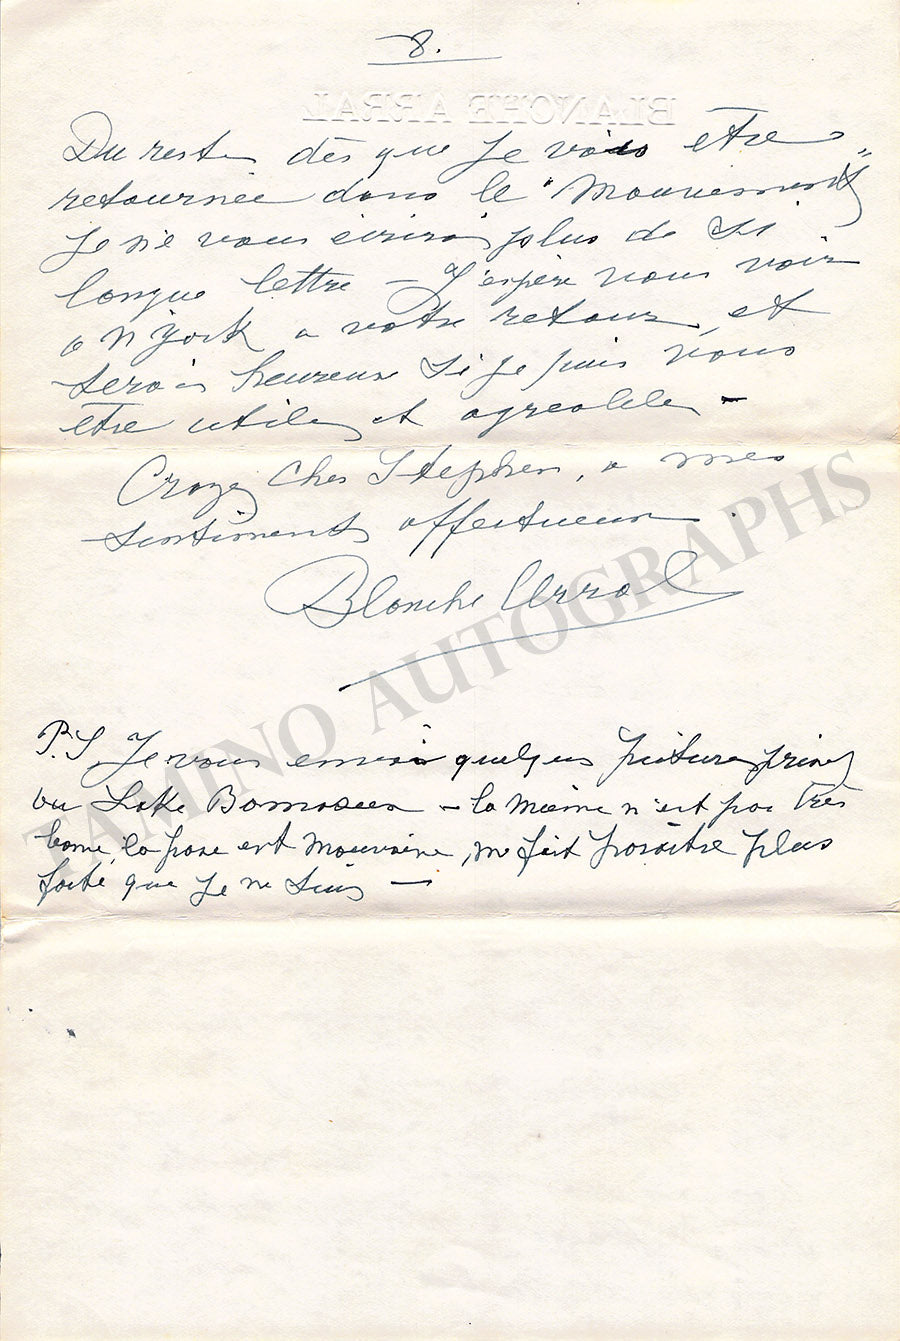 8.
BLANCHE ARRAL
Du reste dès que je vais etre
retournée dans le "Mouvement"
je ne vous écrirai plus de si
longue lettre – J'espère vous voir
a N york a votre retour, et
serais heureuse si je puis vous
etre utile et agreable –
Croyez Cher Stephen, a mes
sentiments affectueux.
Blanche Arral
P.S. Je vous envoie quelques pictures prises
au Lake Bomoseen – la mienne n'est pas très
bonne, la pose est mauvaise, me fait paraitre plus
forte que je ne suis –
TAMINO AUTOGRAPHS